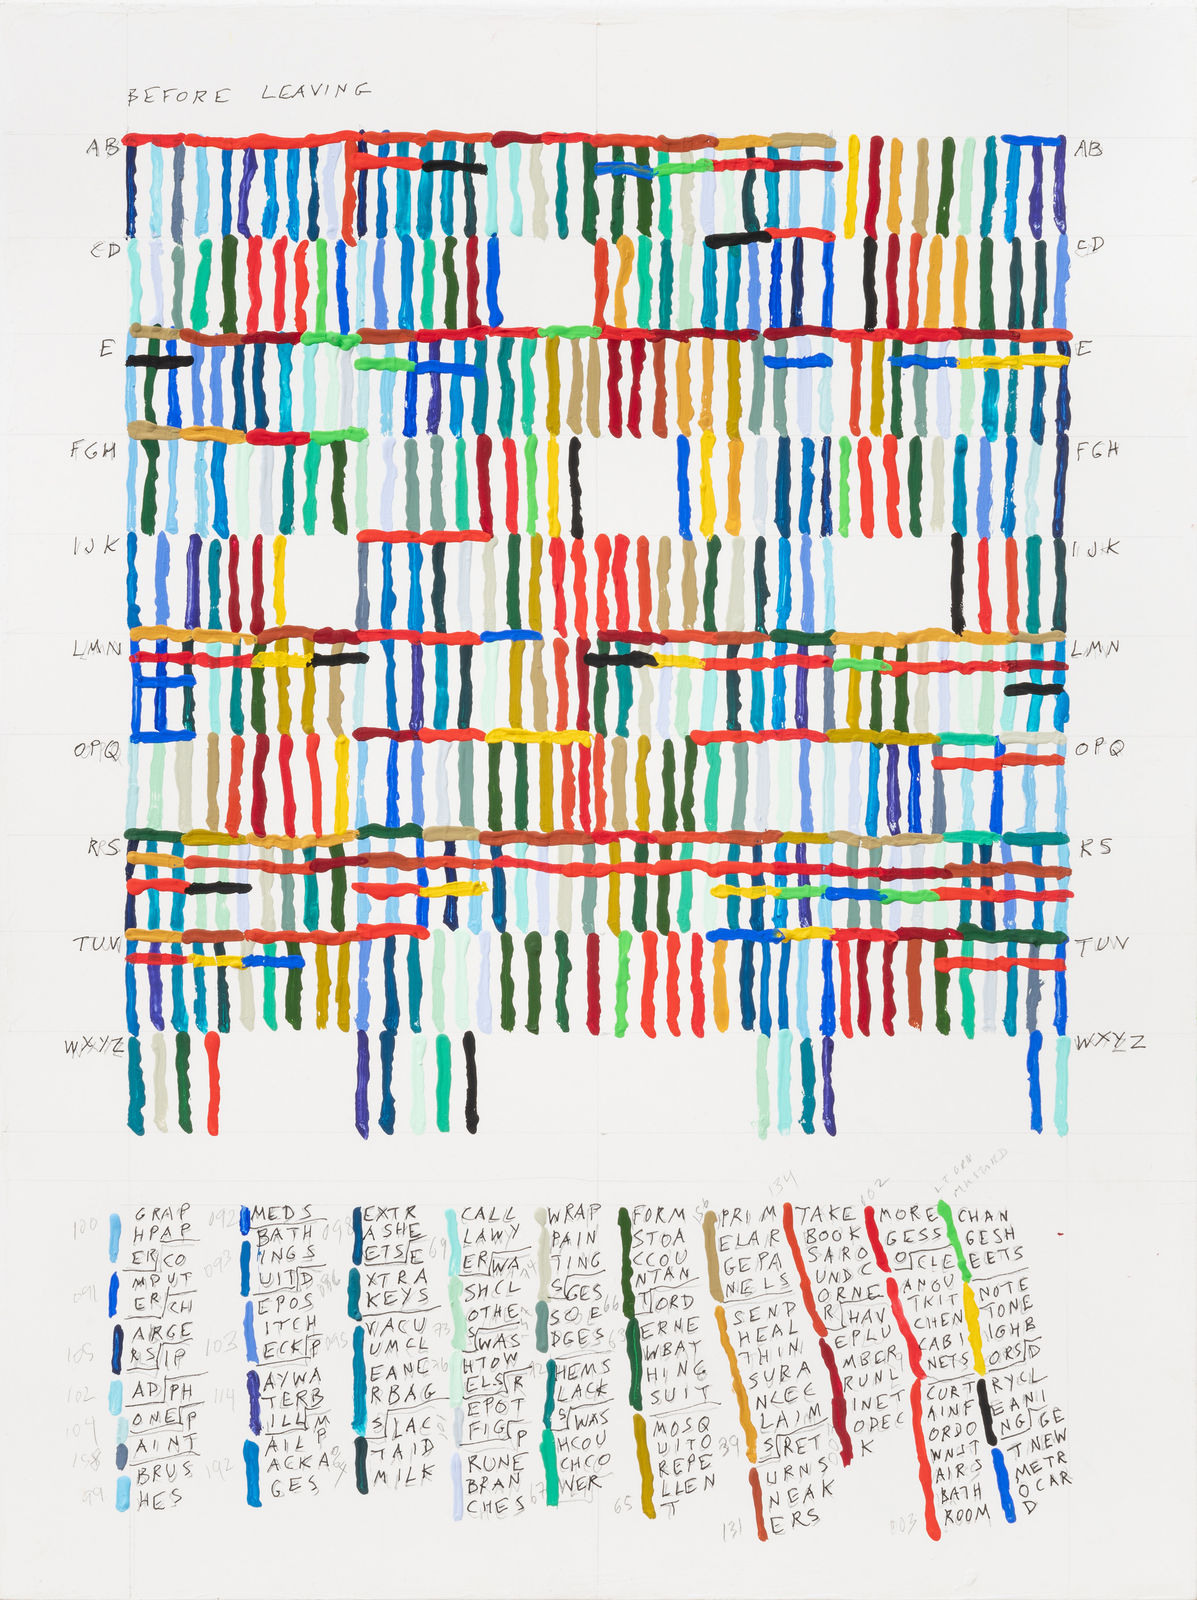 BEFORE LEAVING
AB
AB
CD
CD
E
E
FGH
FGH
IJK
IJK
LMN
LMN
OPQ
OPQ
RS
RS
TUV
TUV
WXYZ
WXYZ
GRAP
HPAP
ER CO
MPUT
ER CH
ARGE
RS IP
AD PH
ONE P
AINT
BRUS
HES
MEDS
BATH
INGS
UIT D
EPOS
ITCH
ECK P
AYWA
TERB
ILL M
AIL P
ACKA
GES
EXTR
ASHE
ETS E
XTRA
KEYS
VACU
UMCL
EANE
RBAG
S LAC
TAID
MILK
CALL
LAWY
ER WA
SHCL
OTHE
S WAS
HTOW
ELS R
EPOT
FIG P
RUNE
BRAN
CHES
WRAP
PAIN
TING
S GES
SOE
DGES
HEMS
LACK
S WAS
HCOU
CHCO
WER
FORM
STOA
CCOU
NTAN
T ORD
ERNE
WBAT
HING
SUIT
MOSQ
UITO
REPE
LLEN
T
PRIM
ELAR
GEPA
NELS
SEND
HEAL
THIN
SURA
NCEC
LAIM
S RET
URNS
NEAK
ERS
134
TAKE
BOOK
SARO
UNDC
ORNE
R HAV
EPLU
MBER
RUNL
INET
ODEC
K
MORE
GESS
O CLE
ANOU
TKIT
CHEN
CABI
NETS
CURT
AINF
ORDO
WNST
AIRS
BATH
ROOM
CHAN
GESH
EETS
NOTE
TONE
IGHB
ORS D
RYCL
EANI
NG GE
TNEW
METR
OCAR
D